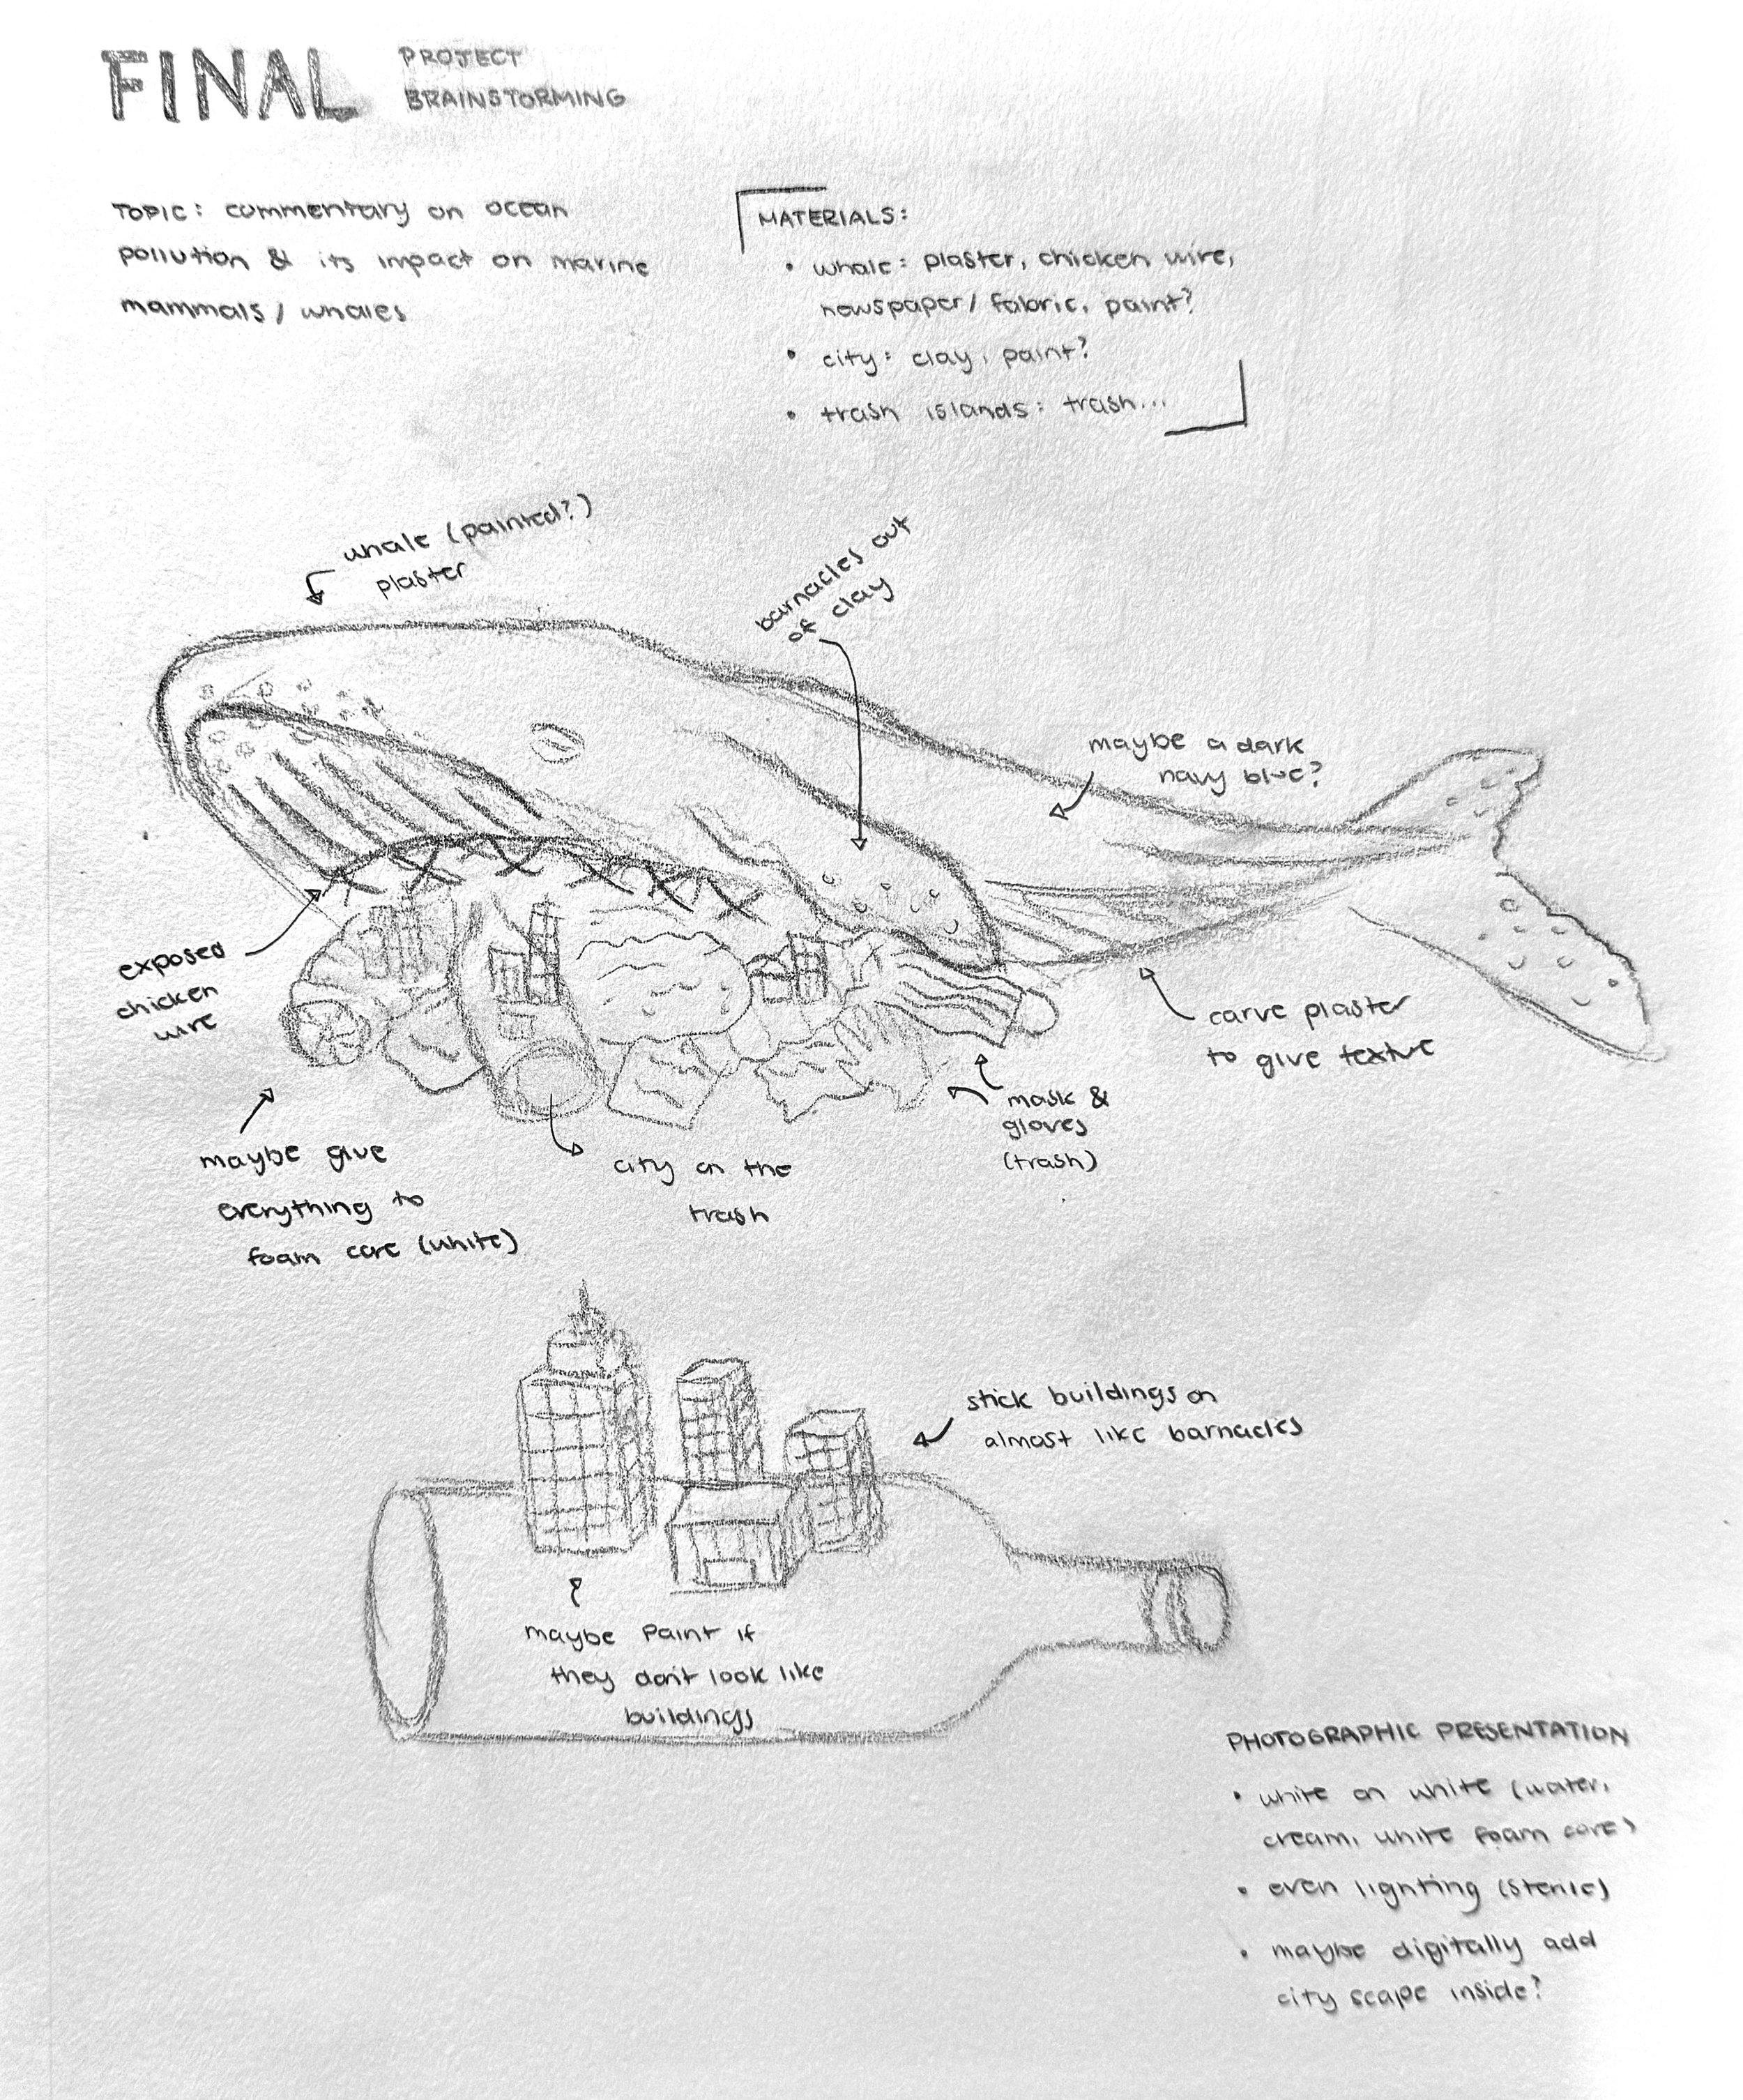 FINAL PROJECT
BRAINSTORMING
TOPIC: commentary on ocean
pollution & its impact on marine
mammals / whales
MATERIALS:
• whale: plaster, chicken wire,
newspaper / fabric, paint?
• city: clay, paint?
• trash islands: trash...
whale (painted?)
plaster
barnacles out
of clay
maybe a dark
navy blue?
exposed
chicken
wire
carve plaster
to give texture
mask &
gloves
(trash)
maybe give
everything to
foam core (white)
city on the
trash
stick buildings on
almost like barnacles
maybe paint if
they don't look like
buildings
PHOTOGRAPHIC PRESENTATION
• white on white (water,
cream, white foam core)
• even lighting (sterile)
• maybe digitally add
city scape inside?